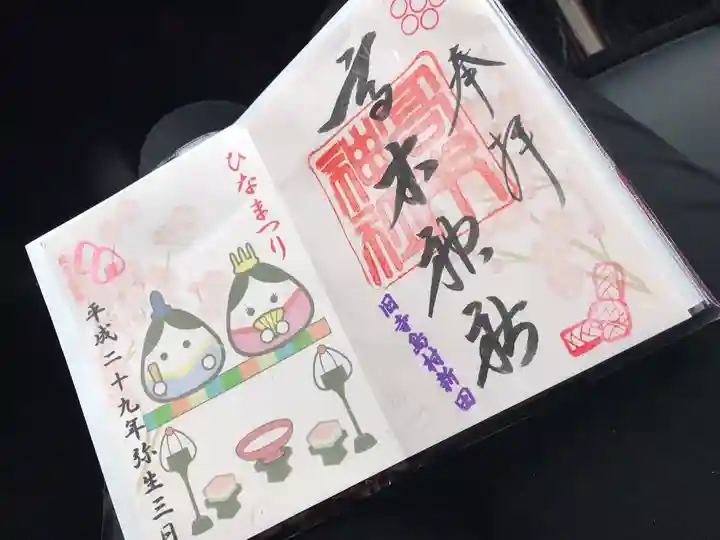 奉拝
高木神社
旧寺島村新田
ひなまつり
平成二十九年弥生三日